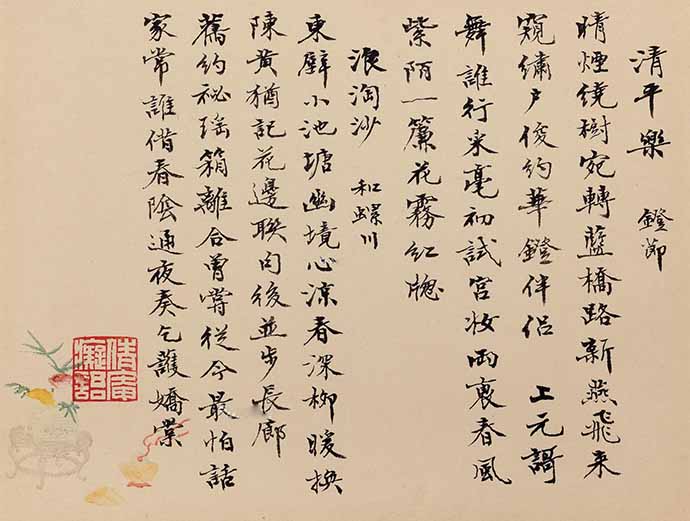 清平樂 鐙節
晴煙繞樹宛轉藍橋路新燕飛来
窺繡户俊約華鐙伴侣 上元謌
舞誰行采毫初試宮妝兩褏春風
紫陌一簾花霧紅牕
浪淘沙 和螺川
東壁小池塘幽境心涼春深柳暖換
陳黄猶記花邊聯句後並步長廊
舊約祕瑶箱離合曾嘗從今最怕話
家常誰借春陰通夜奏乞護嬌棠